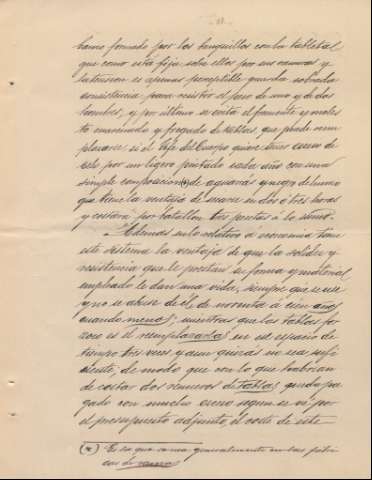 hueco formado por los banquillos con la tabla tal
que como esta fija sobre ellos por sus
extension es apenas perceptible queda sobrada
consistencia para resistir el peso de uno y de dos
hombres, y por último se evita el frecuente y moles
to enarenado y fregado de tablas, que puede reem
plazarse si el Jefe del Cuerpo quiere
por un ligero pintado cada año con una
simple composicion (*) de aguarras y negro de humo
que tiene la ventaja de secarse en dos ó tres horas
y costará por batallon tres pesetas á lo sumo.
Además en lo relativo á economia tiene
este sistema la ventaja de que la solidez y
resistencia que le prestan su forma y material
empleado le dan una vida, siempre que se use
y no se abuse de él, de noventa á cien años
cuando menos; mientras que las tablas for
zoso es el reemplazarlas en ese espacio de
tiempo tres veces y aun quizas no sea sufi
ciente, de modo que con lo que habrian
de costar dos renuevos de tablas queda pa
gado con mucho exceso segun se vé por
el presupuesto adjunto, el coste de este
(*) Es la que se usa generalmente en las fábri
cas de